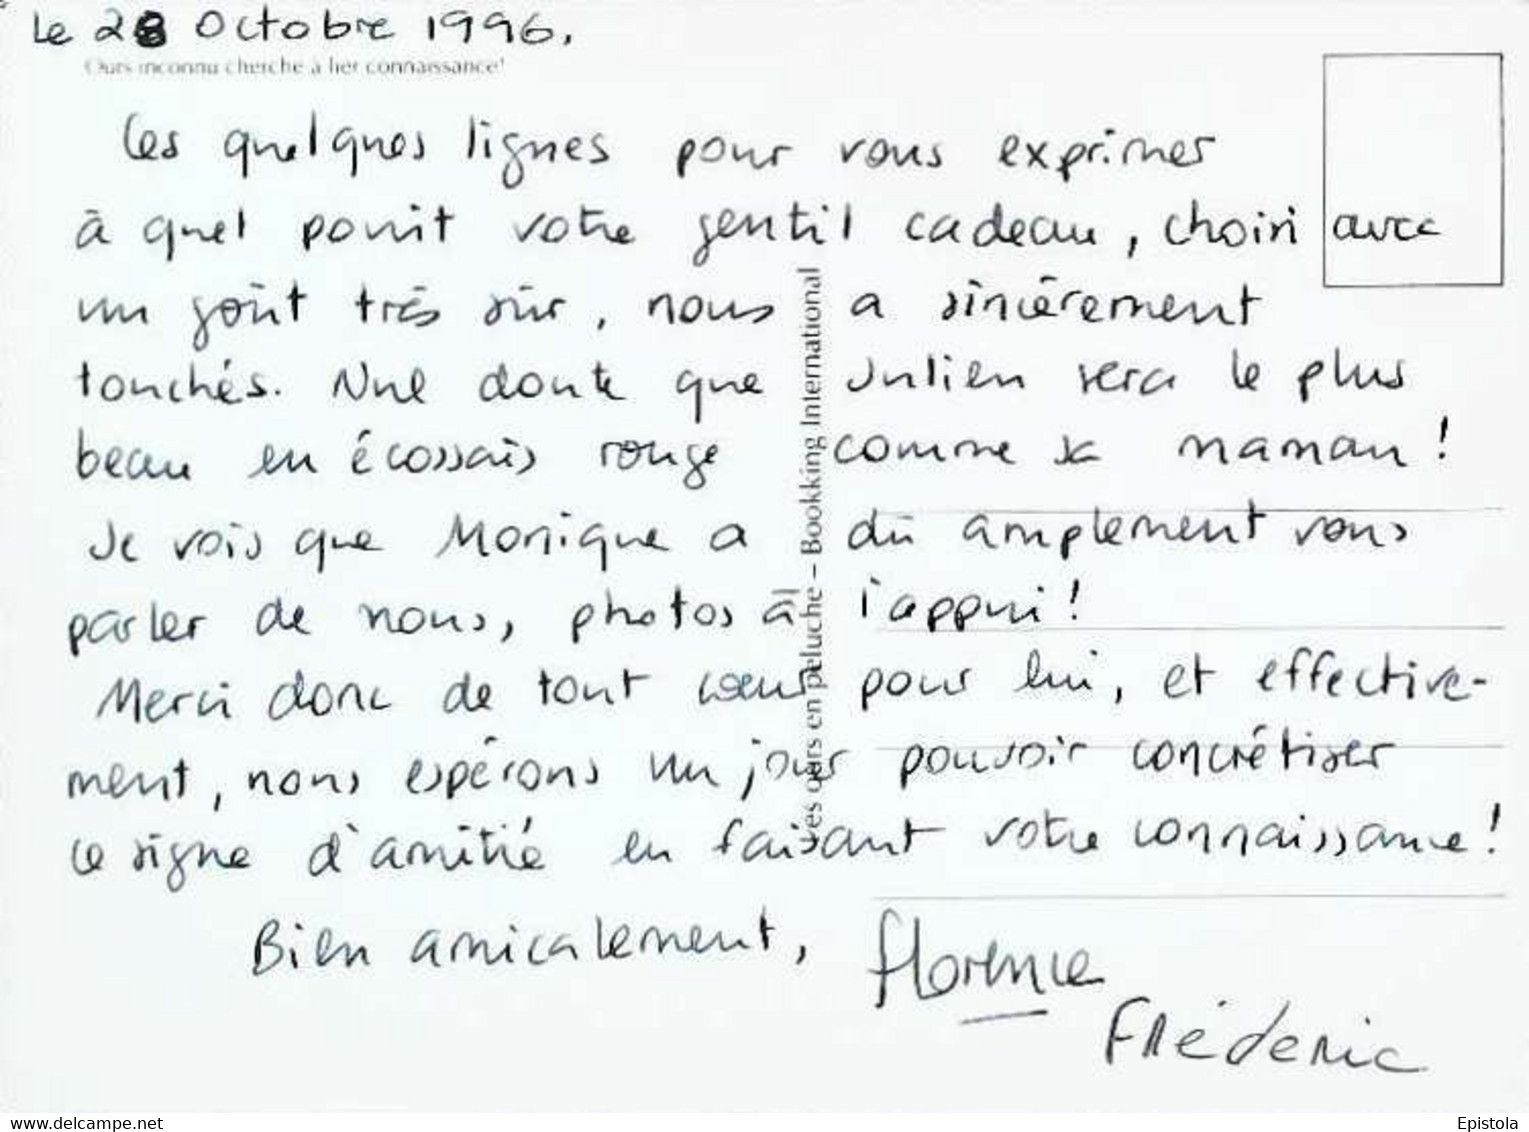 Le 28 Octobre 1996.
Ours inconnu cherche à lier connaissance!
Ces quelques lignes pour vous exprimer
à quel point votre gentil cadeau, choisi avec
un goût très sûr, nous a sincèrement
touchés. Nul doute que Julien sera le plus
beau en écossais rouge comme sa maman!
Je vois que Monique a dû amplement vous
parler de nous, photos à l'appui!
Merci donc de tout cœur pour lui, et effective-
ment, nous espérons un jour pouvoir concrétiser
ce signe d'amitié en faisant votre connaissance!
Bien amicalement, Florence
Frédéric
ves ours en peluche – Bookking International
Epistola
www.delcampe.net